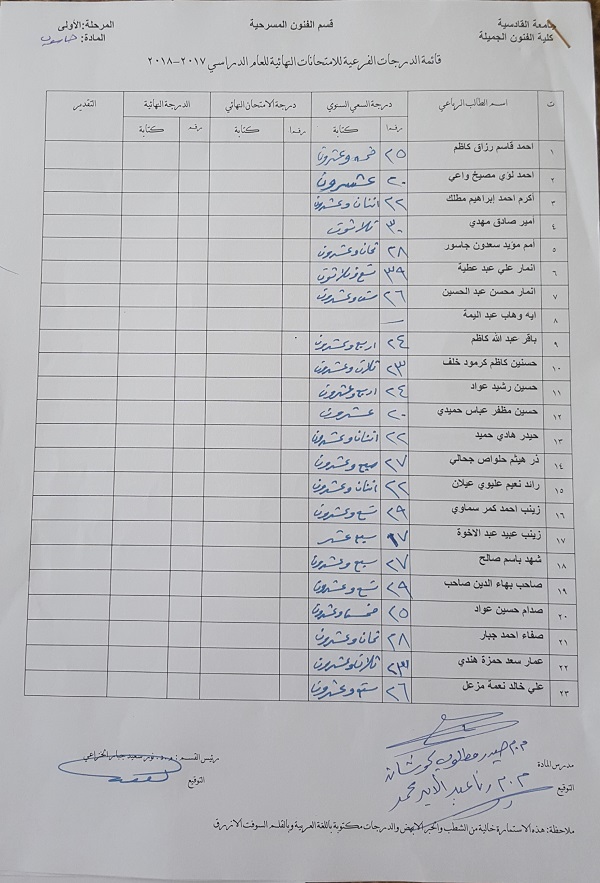 جامعة القادسية قسم الفنون المسرحية المرحلة:الأولى
كلية الفنون الجميلة المادة: حاسوب
قائمة الدرجات الفرعية للامتحانات النهائية للعام الدراسي ٢٠١٧-٢٠١٨
ت اسم الطالب الرباعي درجة السعي السنوي درجة الامتحان النهائي الدرجة النهائية التقدير
رقما كتابة رقما كتابة رقما كتابة
١ احمد قاسم رزاق كاظم ٢٥ خمسه وعشرون
٢ احمد لؤي مصيخ واعي ٢٠ عشرون
٣ أكرم احمد إبراهيم مطلك ٢٢ اثنان وعشرون
٤ أمير صادق مهدي ٣٠ ثلاثون
٥ أمم مؤيد سعدون جاسور ٢٨ ثمان وعشرون
٦ انمار علي عبد عطية ٣٩ تسع وثلاثون
٧ انمار محسن عبد الحسين ٢٦ ست وعشرون
٨ ايه وهاب عبد اليمة —
٩ باقر عبد الله كاظم ٢٤ اربع وعشرون
١٠ حسنين كاظم كرمود خلف ٢٣ ثلاث وعشرون
١١ حسين رشيد عواد ٢٤ اربع وعشرون
١٢ حسين مظفر عباس حميدي ٢٠ عشرون
١٣ حيدر هادي حميد ٢٢ اثنان وعشرون
١٤ ذر هيثم حلواص جحالي ٢٧ سبع وعشرون
١٥ رائد نعيم عليوي عيلان ٢٢ اثنان وعشرون
١٦ زينب احمد كمر سماوي ٢٩ تسع وعشرون
١٧ زينب عبيد عبد الاخوة ١٧ سبع عشر
١٨ شهد باسم صالح ٢٧ سبع وعشرون
١٩ صاحب بهاء الدين صاحب ٢٩ تسع وعشرون
٢٠ صدام حسين عواد ٢٥ خمس وعشرون
٢١ صفاء احمد جبار ٢٨ ثمان وعشرون
٢٢ عمار سعد حمزة هندي ٢٣ ثلاث وعشرون
٢٣ علي خالد نعمة مزعل ٢٦ ست وعشرون
مدرس المادة م.م حيدر رئيس القسم:
التوقيع م.م رنا عبد الأمير محمد التوقيع
ملاحظة: هذه الاستمارة خالية من الشطب والحبر الابيض والدرجات مكتوبة باللغة العربية وبالقلم السوفت الازرق